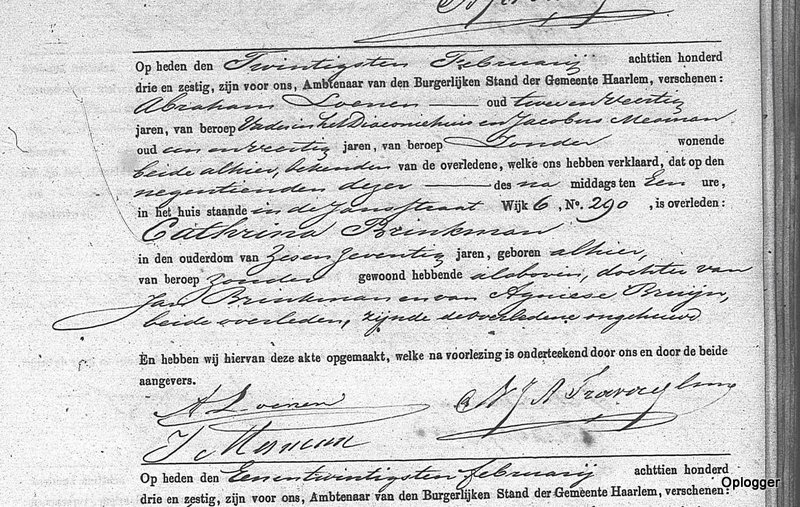 Op heden den Twintigsten Februarij achttien honderd
drie en zestig, zijn voor ons, Ambtenaar van den Burgerlijken Stand der Gemeente Haarlem, verschenen:
Abraham Loenen oud twee en veertig
jaren, van beroep Vader in het Diaconiehuis en Jacobus Mesman
oud een en veertig jaren, van beroep Zonder wonende
beide alhier, bekenden van de overledene, welke ons hebben verklaard, dat op den
negentienden dezer des na middags ten Een ure,
in het huis staande in de Jansstraat Wijk 6, No. 290, is overleden:
Cathrina Brinkman
in den ouderdom van Zes en Zeventig jaren, geboren alhier,
van beroep Zonder gewoond hebbende alsboven, dochter van
Jan Brinkman en van Agniese Bruijn,
beide overleden, zijnde de overledene ongehuwd
En hebben wij hiervan deze akte opgemaakt, welke na voorlezing is onderteekend door ons en door de beide
aangevers.
A Loenen
J Mesman
Op heden den Een en twintigsten februarij achttien honderd
drie en zestig, zijn voor ons, Ambtenaar van den Burgerlijken Stand der Gemeente Haarlem, verschenen:
Oplogger